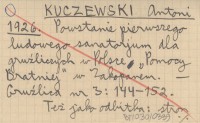 KUCZEWSKI Antoni
1926. Powstanie pierwszego
ludowego sanatorjum dla
gruźliczych w Polsce „Pomocy
Bratniej" w Zakopanem. —
Gruźlica nr 3: 144-152.
Też jako odbitka: stron